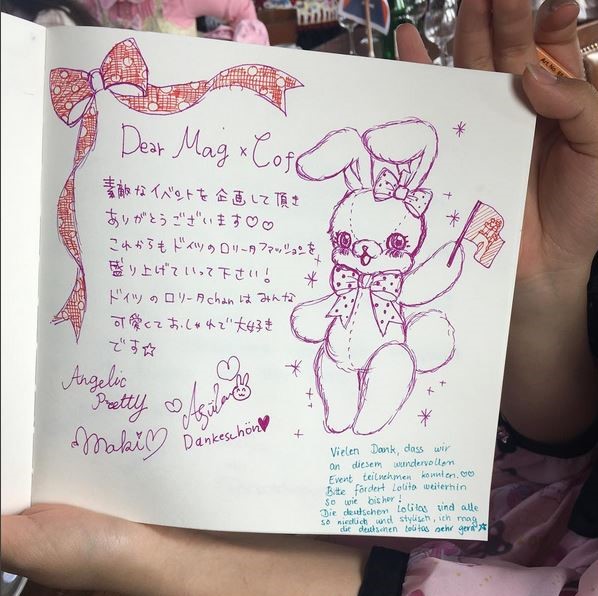 Dear Mag × Cof
素敵なイベントを企画して頂き
ありがとうございます♡♡
これからもドイツのロリータファッションを
盛り上げていって下さい!
ドイツのロリータchanはみんな
可愛くておしゃれで大好き
です☆
Angelic
Pretty
Maki♡
Dankeschön♥
Vielen Dank, dass wir
an diesem wundervollen
Event teilnehmen konnten.♡♡
Bitte fördert Lolita weiterhin
so wie bisher!
Die deutschen Lolitas sind alle
so niedlich und stylisch, ich mag
die deutschen Lolitas sehr gern☆